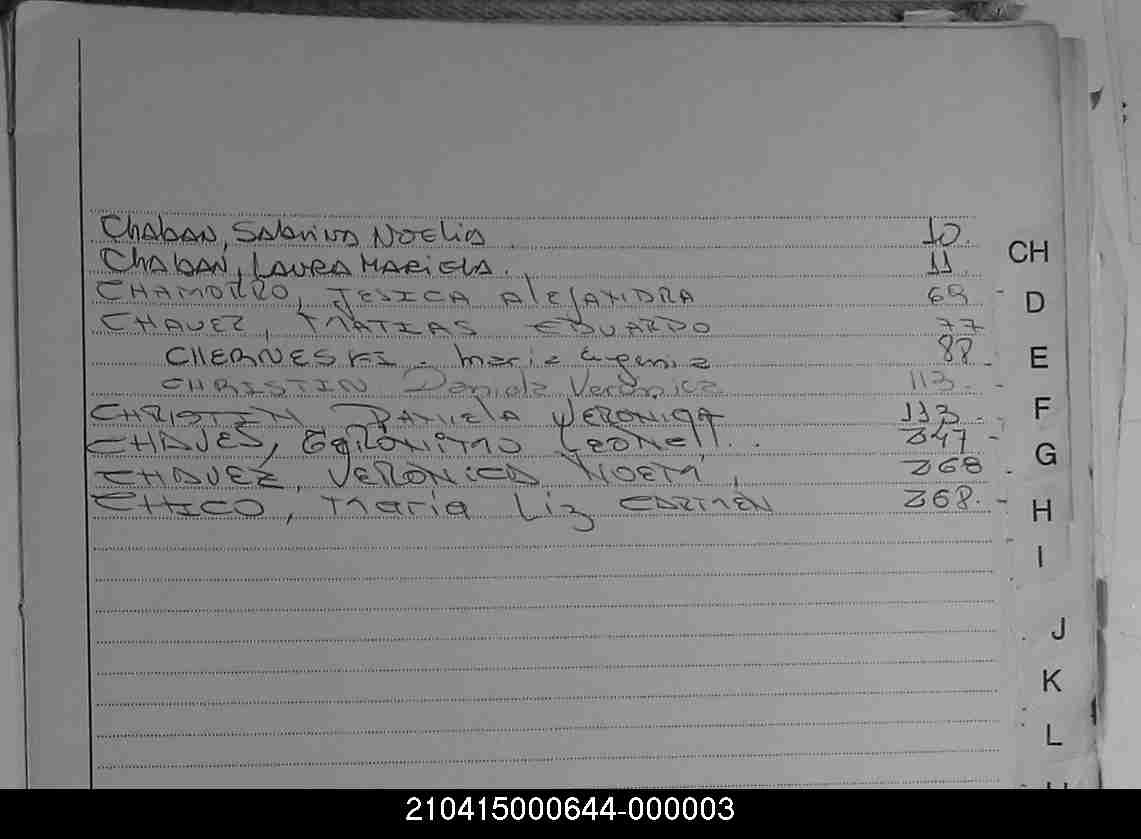 Chaban, Sabrina Noelia 10.
Chaban, Laura Mariela. 11
CH
CHAMORRO, JESICA AlEJANDRA 69
D
CHAVEZ, MATIAS EDUARDO 77
CHERNESKI - Maria Eugenia 88
E
CHRISTIN Daniela Verónica 113.
CHRISTIN DANIELA VERONICA 113.
F
CHAVES, GERONIMO LEONEL.. 347
G
CHAVEZ, VERONICA NOEMI, 368
CHICO, Maria Liz CARMEN 368.
H
I
J
K
L
210415000644-000003